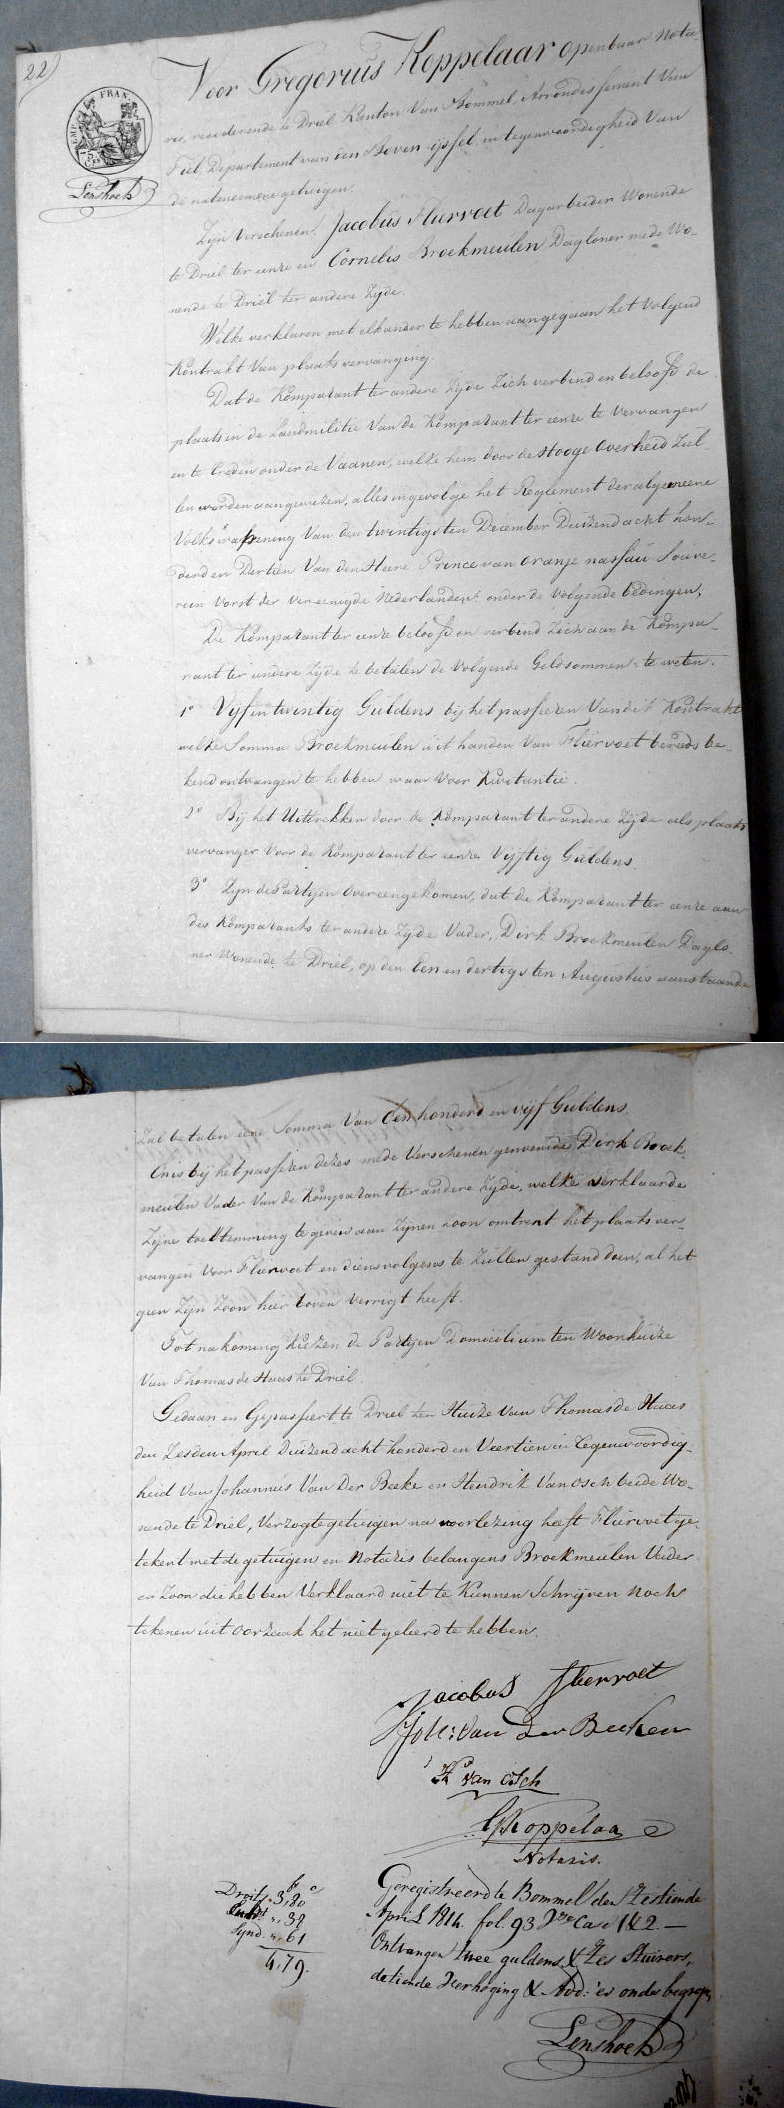 22)
FRAN
75
Lenshoek
Voor Gregorius Koppelaar openbaar Nota-
ris, resideerende te Driel Kanton Van Bommel, Arrondissement Van
Tiel, Departement van den Boven-ijssel, in tegenwoordigheid Van
de natenoemene getuigen.
Zijn Verschenen Jacobus Fliervoet Dagarbeider Wonende
te Driel ter eenre en Cornelis Broekmeulen Dagloner mede Wo-
nende te Driel ter andere Zijde.
Welke verklaren met elkander te hebben aangegaan het Volgend
Kontrakt Van plaatsvervanging.
Dat de Komparant ter andere Zijde Zich verbind en beloofd de
plaats in de Landmilitie Van de Komparant ter eenre te Vervangen
en te treden onder de Vaanen, welke hem door de Hooge Overheid Zul-
len worden aangewezen, alles ingevolge het Reglement der algemeene
Volkswapening Van den twintigsten December Duizend acht hon-
derd en Dertien Van den Heere Prince van Oranje nassau Souve-
rein Vorst der Vereenigde Nederlanden; onder de Volgende bedingen,
De Komparant ter eenre beloofd en verbind Zich aan de Kompa-
rant ter andere Zijde te betalen de Volgende Geldsommen te weten.
1o Vijf en twintig Guldens bij het passeren Van dit Kontrakt
welke Somma Broekmeulen uit handen Van Fliervoet bereids be-
kend ontvangen te hebben waar Voor Kwitantie.
2o Bij het Uittrekken door de Komparant ter andere Zijde als plaats
vervanger Voor de Komparant ter eenre Vijftig Guldens.
3o Zijn de Partijen Overeengekomen, dat de Komparant ter eenre aan
des Komparants ter andere Zijde Vader, Derk Broekmeulen Daglo-
ner Wonende te Driel, op den Een en dertigsten Augustus aanstaande
Zal betalen eene Somma Van Een honderd en vijf Guldens.
En is bij het passeren dezes mede Verschenen genoemde Derk Broek-
meulen Vader Van de Komparant ter andere Zijde, welke verklaarde
Zijne toestemming te geven aan Zijnen Zoon omtrent het plaatsver-
vangen Voor Fliervoet en diensvolgens te Zullen gestand doen, al het
geen Zijn Zoon hier boven Verrigt heeft.
Tot nakoming kiezen de Partijen Domicilium ten Woonhuize
Van Thomas de Haas te Driel.
Gedaan en Gepasseert te Driel ten Huize Van Thomas de Haas
den Zesden April Duizend acht honderd en Veertien in tegenwoordig-
heid Van Johannes Van Der Beeke en Hendrik Van Osch beide Wo-
nende te Driel, Verzogte getuigen na voorlezing heeft Fliervoet ge-
tekent met de getuigen en Notaris belangens Broekmeulen Vader
en Zoon die hebben Verklaard niet te Kunnen Schrijven noch
tekenen uit oorzaak het niet geleerd te hebben.
Jacobus Fliervoet
Joh: Van Der Beeken
H van Osch
G Koppelaar
Notaris.
Droit 3,80
38
Synd. 61
4.79.
Geregistreerd te Bommel den Zestiende
April 1814. fol. 93 Vso Case 1 & 2 —
Ontvangen twee guldens & Zes Stuivers,
de tiende Verhoging & Add: er onder begrepen
Lenshoek